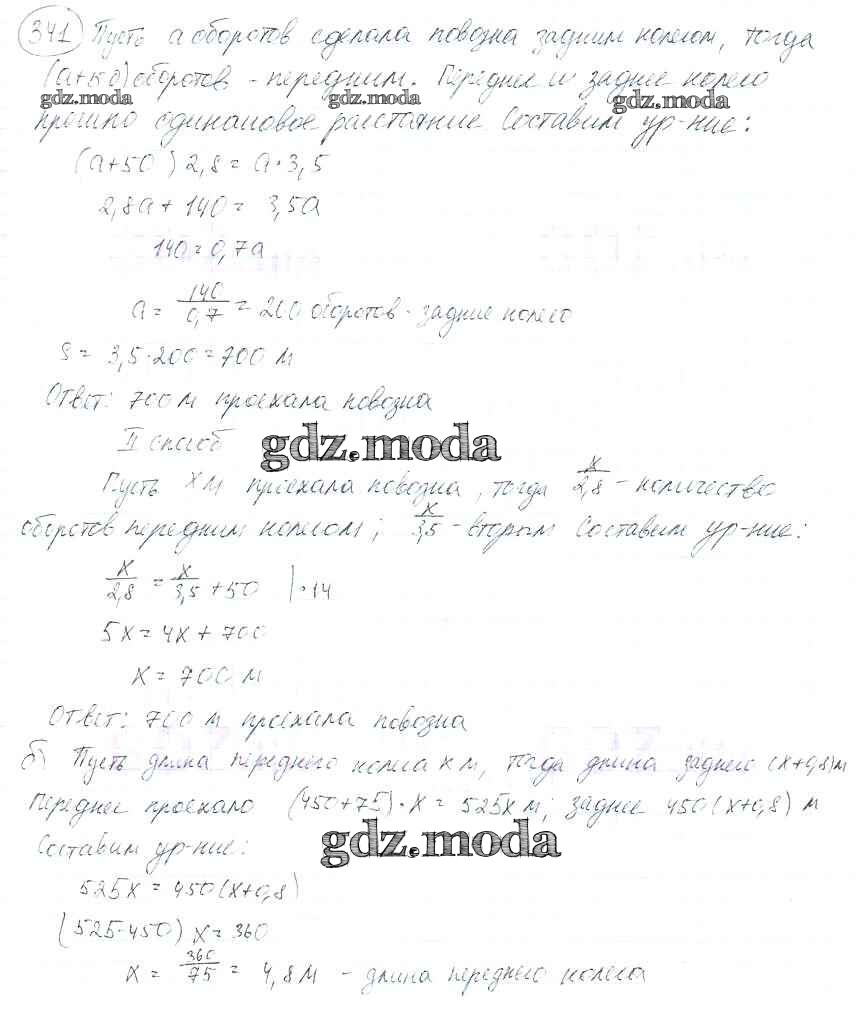 341 Пусть а оборотов сделала повозка задним колесом, тогда
(а+50) оборотов - передним. Переднее и заднее колесо
gdz.moda gdz.moda gdz.moda
прошло одинаковое расстояние Составим ур-ние:
(а+50) 2,8 = а·3,5
2,8а + 140 = 3,5а
140 = 0,7а
а = 140/0,7 = 200 оборотов - задние колесо
S = 3,5·200 = 700 м
Ответ: 700 м проехала повозка
II способ
gdz.moda
Пусть х м проехала повозка, тогда х/2,8 - количество
оборотов передним колесом; х/3,5 - вторым Составим ур-ние:
х/2,8 = х/3,5 + 50 |·14
5х = 4х + 700
х = 700 м
Ответ: 700 м проехала повозка
б) Пусть длина переднего колеса х м, тогда длина заднего (х+0,8) м
Переднее проехало (450+75)·х = 525х м; заднее 450(х+0,8) м
Составим ур-ние:
gdz.moda
525х = 450(х+0,8)
(525-450) х = 360
х = 360/75 = 4,8 м - длина переднего колеса